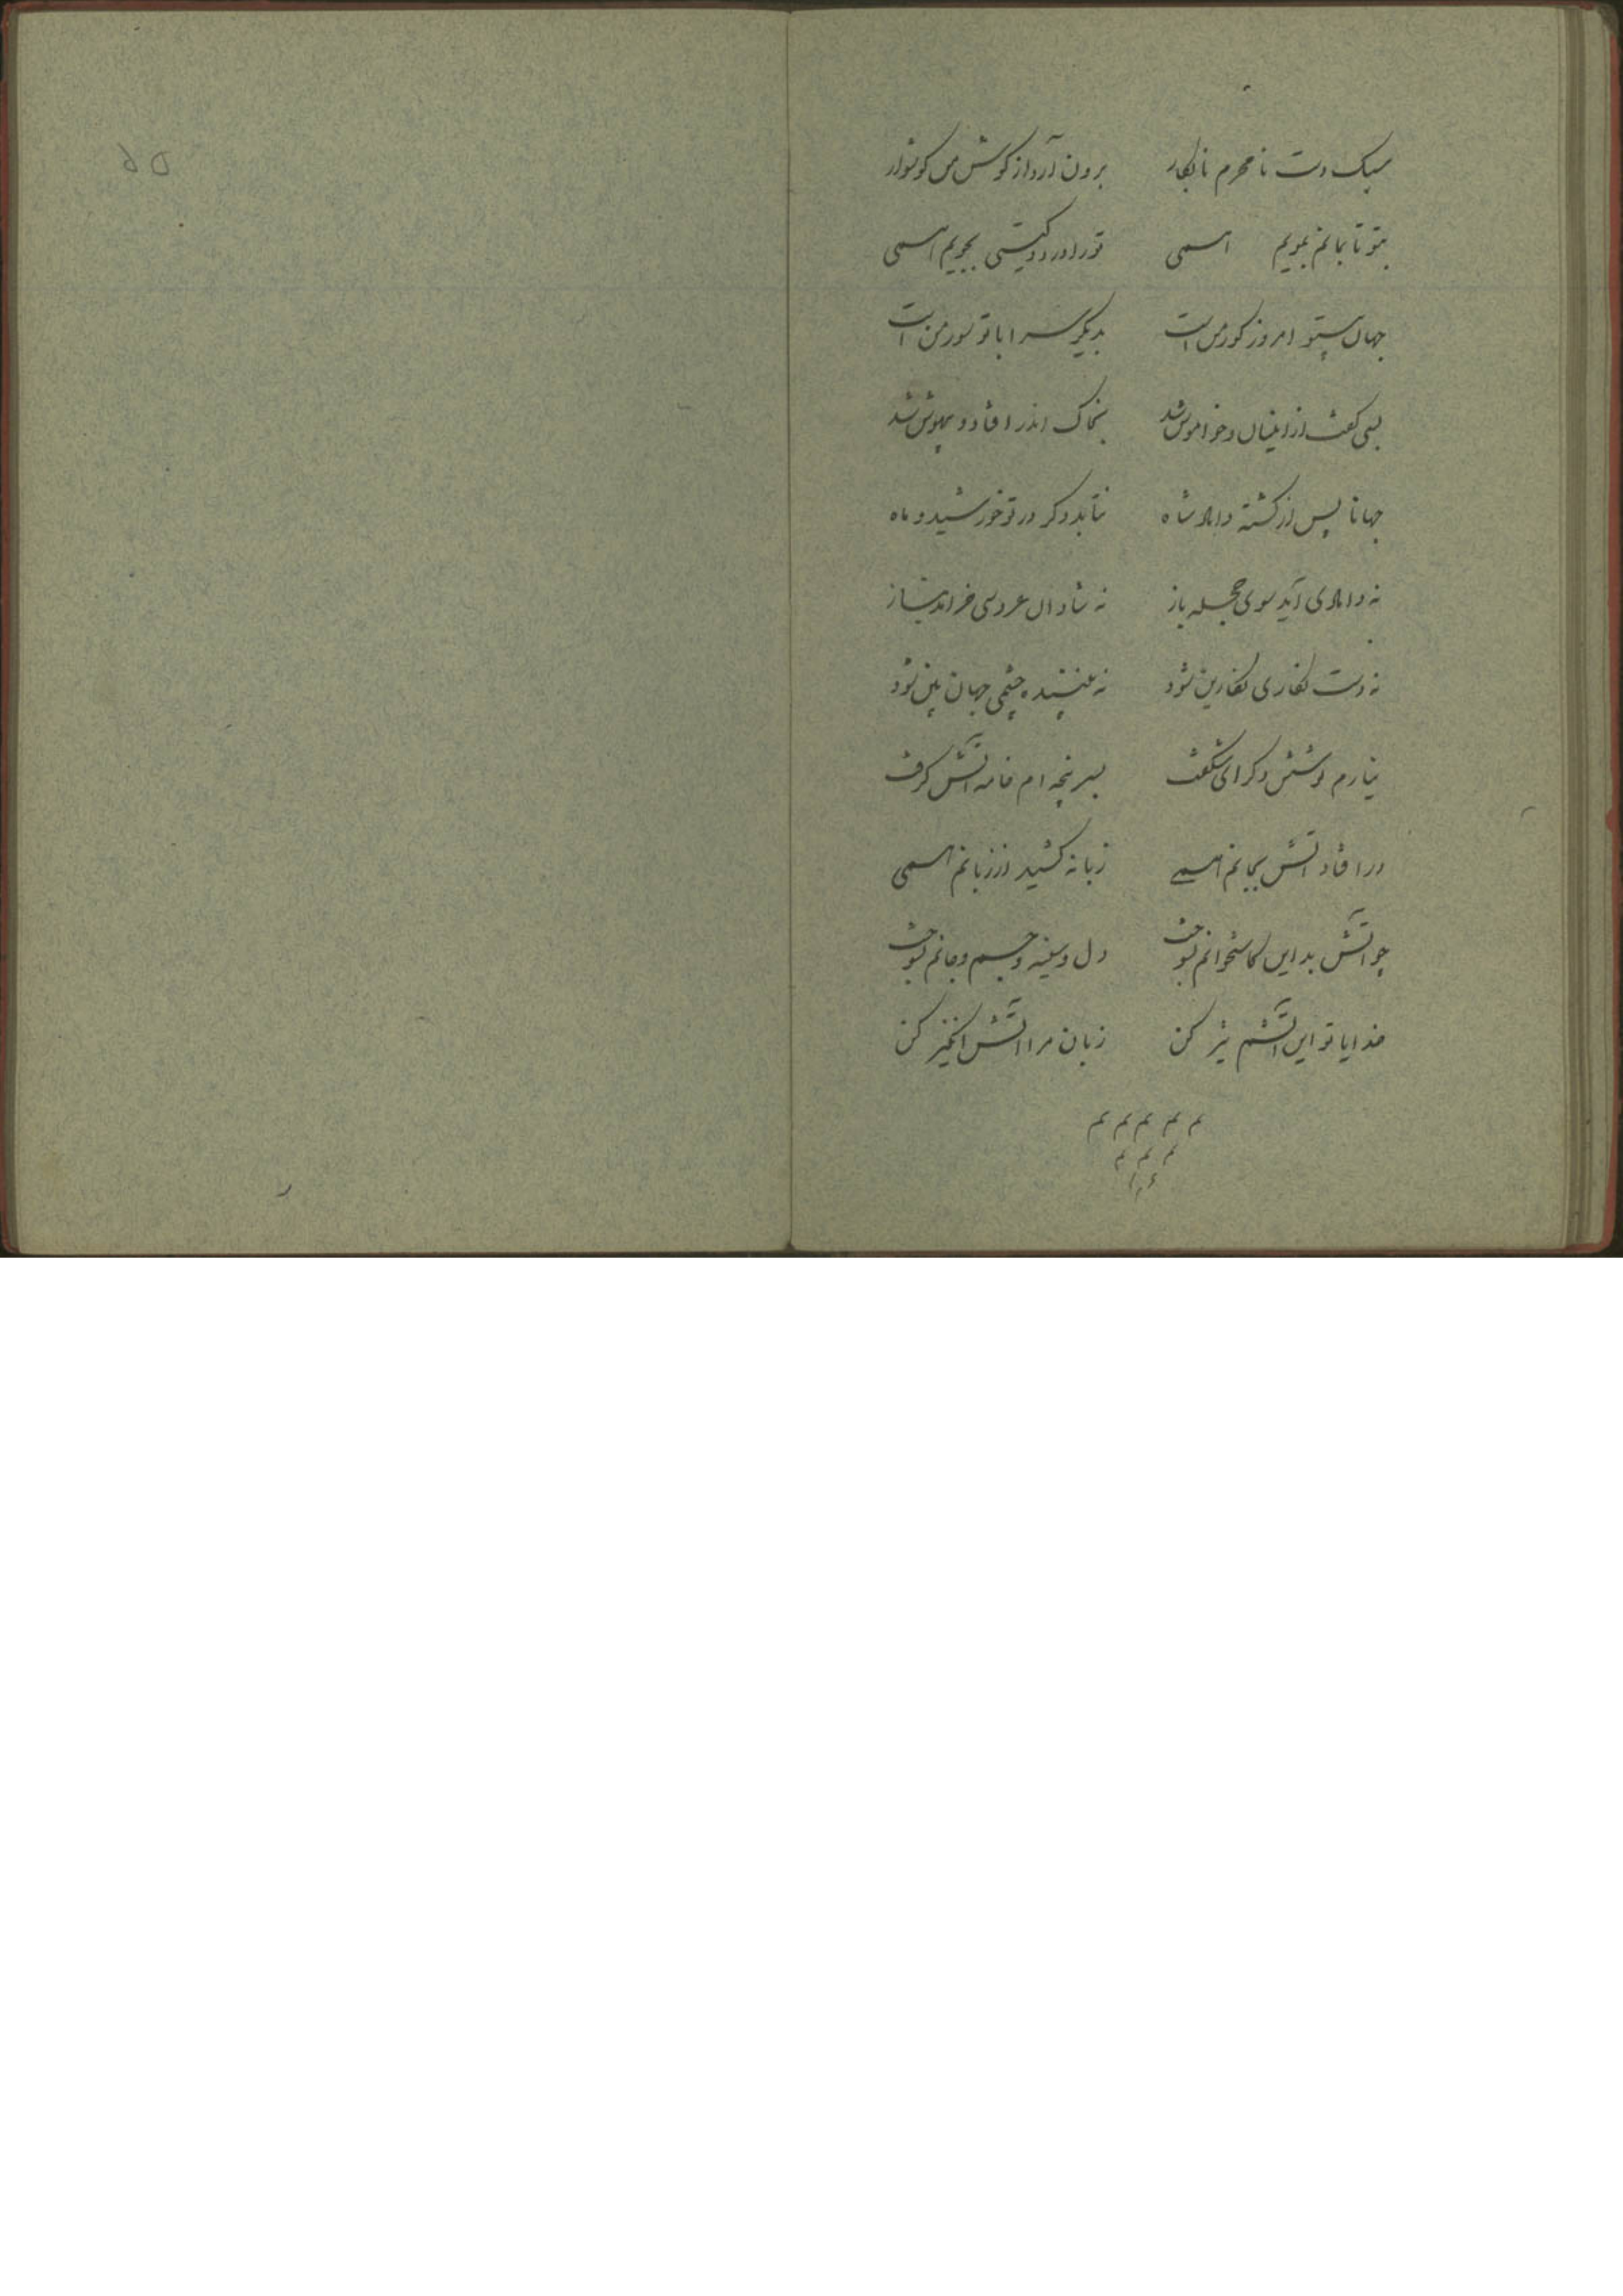 سبک دست نامحرم نابکار برون آرد از کوش من کوشوار
بتو تا بمانم بمویم همی تو را در دو کیتی بجویم همی
جهان بیتو امروز کور من است بدیکر سرا با تو سور من است
بسی کفت از اینسان و خواموش شد بخاک اندر افتاد و بیهوش شد
جهانا پس از کشته داماد شاه نتابد دکر در تو خورشید و ماه
نه دامادی آید سوی حجله باز نه شادان عروسی خرامد بناز
نه دست نکاری نکارین شود نه بیننده چشمی جهان بین شود
نیارم نوشتن دکر ای شکفت بسر پنجه ام خامه آتش کرفت
در افتاد آتش بجانم همی زبانه کشید از زبانم همی
چو آتش بد این کاستخوانم بسوخت دل و سینه و جسم و جانم بسوخت
خدایا تو این آتشم تیز کن زبان مرا آتش انکیز کن